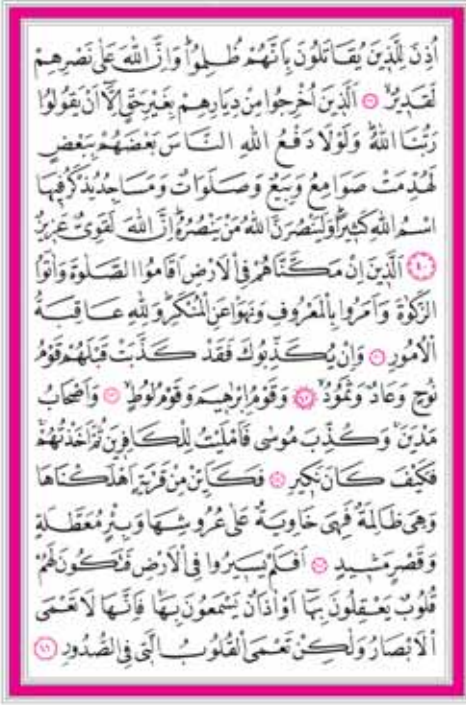 اُذِنَ لِلَّذِينَ يُقَاتَلُونَ بِاَنَّهُمْ ظُلِمُوا وَاِنَّ اللّٰهَ عَلٰى نَصْرِهِمْ
لَقَدِيرٌ ﴿٣٩﴾ اَلَّذِينَ اُخْرِجُوا مِنْ دِيَارِهِمْ بِغَيْرِ حَقٍّ اِلَّا اَنْ يَقُولُوا
رَبُّنَا اللّٰهُ وَلَوْلَا دَفْعُ اللّٰهِ النَّاسَ بَعْضَهُمْ بِبَعْضٍ
لَهُدِّمَتْ صَوَامِعُ وَبِيَعٌ وَصَلَوَاتٌ وَمَسَاجِدُ يُذْكَرُ فِيهَا
اسْمُ اللّٰهِ كَثِيرًا وَلَيَنْصُرَنَّ اللّٰهُ مَنْ يَنْصُرُهُ اِنَّ اللّٰهَ لَقَوِيٌّ عَزِيزٌ
﴿٤٠﴾ اَلَّذِينَ اِنْ مَكَّنَّاهُمْ فِي الْاَرْضِ اَقَامُوا الصَّلٰوةَ وَاٰتَوُا
الزَّكٰوةَ وَاَمَرُوا بِالْمَعْرُوفِ وَنَهَوْا عَنِ الْمُنْكَرِ وَلِلّٰهِ عَاقِبَةُ
الْاُمُورِ ﴿٤١﴾ وَاِنْ يُكَذِّبُوكَ فَقَدْ كَذَّبَتْ قَبْلَهُمْ قَوْمُ
نُوحٍ وَعَادٌ وَثَمُودُ ﴿٤٢﴾ وَقَوْمُ اِبْرٰهِيمَ وَقَوْمُ لُوطٍ ﴿٤٣﴾ وَاَصْحَابُ
مَدْيَنَ وَكُذِّبَ مُوسٰى فَاَمْلَيْتُ لِلْكَافِرِينَ ثُمَّ اَخَذْتُهُمْ
فَكَيْفَ كَانَ نَكِيرِ ﴿٤٤﴾ فَكَاَيِّنْ مِنْ قَرْيَةٍ اَهْلَكْنَاهَا
وَهِيَ ظَالِمَةٌ فَهِيَ خَاوِيَةٌ عَلٰى عُرُوشِهَا وَبِئْرٍ مُعَطَّلَةٍ
وَقَصْرٍ مَشِيدٍ ﴿٤٥﴾ اَفَلَمْ يَسِيرُوا فِي الْاَرْضِ فَتَكُونَ لَهُمْ
قُلُوبٌ يَعْقِلُونَ بِهَا اَوْ اٰذَانٌ يَسْمَعُونَ بِهَا فَاِنَّهَا لَا تَعْمَى
الْاَبْصَارُ وَلٰكِنْ تَعْمَى الْقُلُوبُ الَّتِي فِي الصُّدُورِ ﴿٤٦﴾